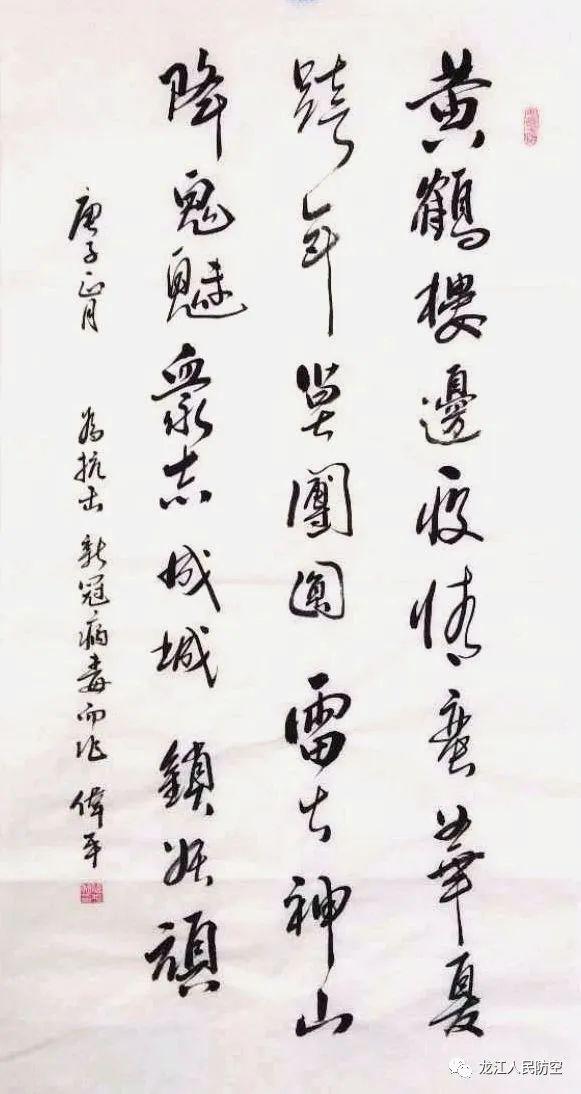 黄鶴樓邊疫情華夏
跨年團圓雷火神山
降鬼魅眾志成城鎖妖頑
庚子正月 为抗击新冠病毒而作 偉平
龙江人民防空